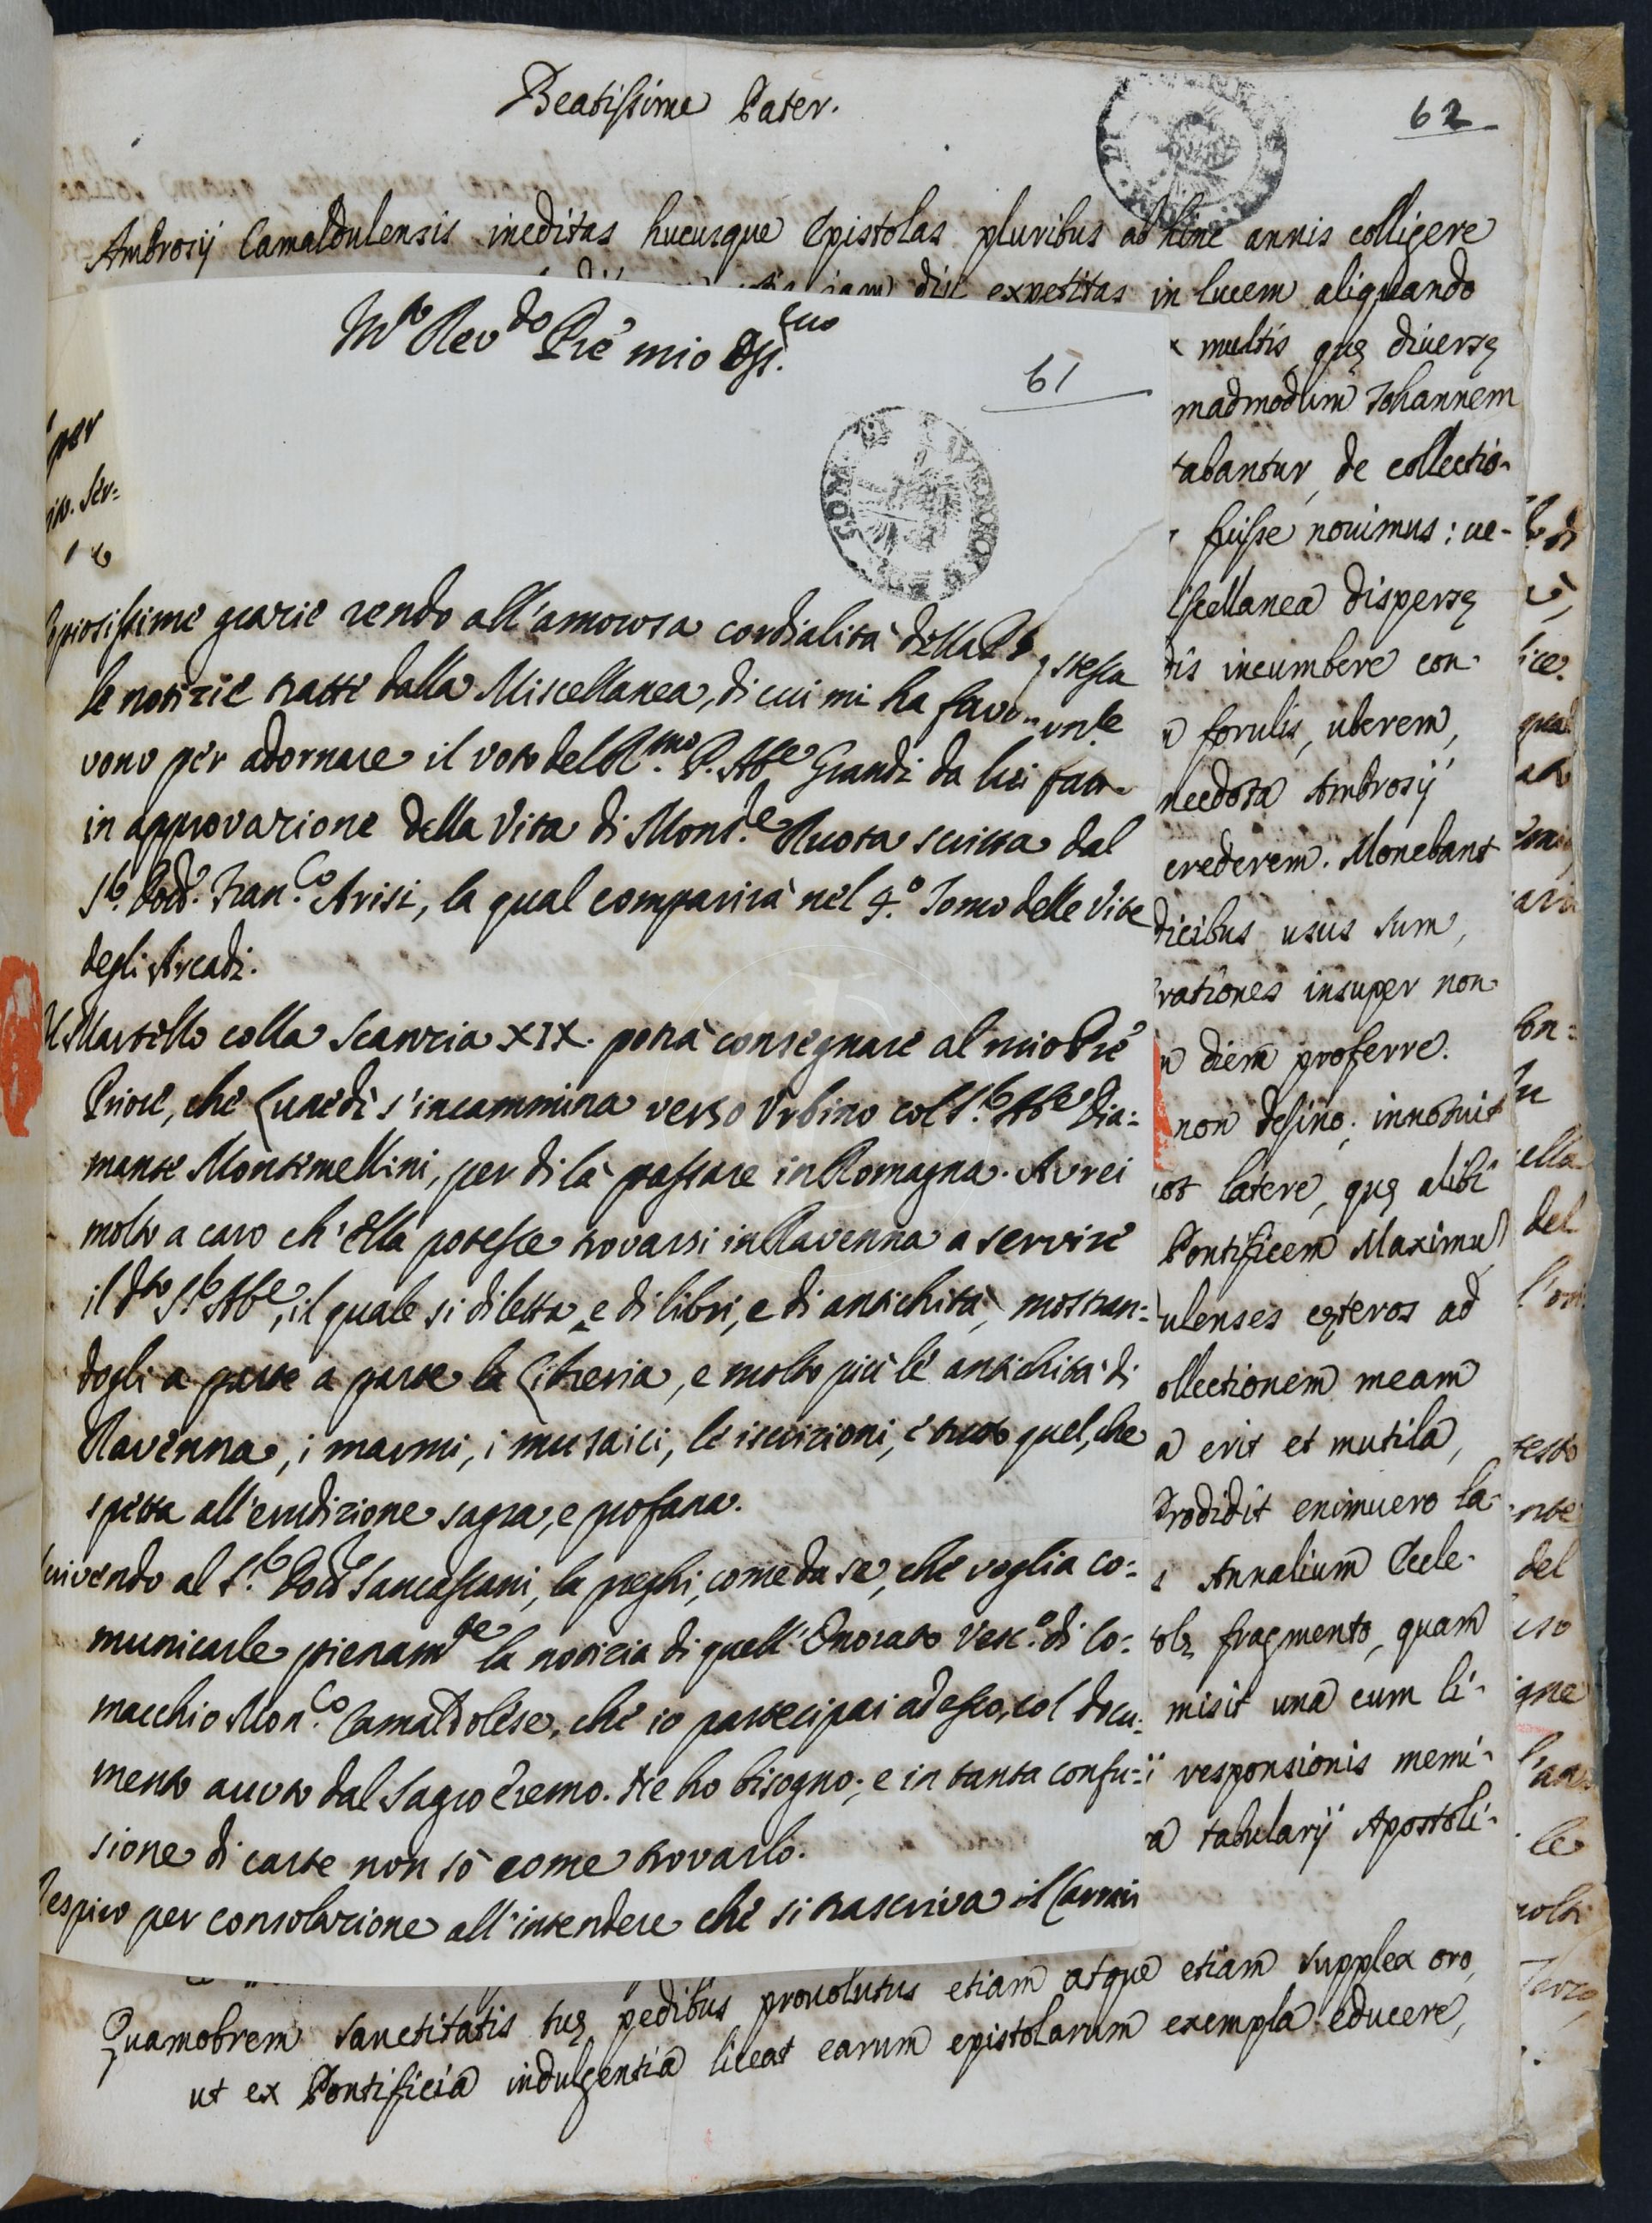 Beatissime Pater.
62
Ambrosij Camaldulensis ineditas hucusque Epistolas pluribus ab hinc annis colligere
iam diu expetitas in lucem aliquando
multis, quę diversę
madmodum Johannem
tabantur, de collectio-
fuisse novimus: ue-
scellanea dispersę
dis incumbere con-
forulis, uberem,
necdota Ambrosij
crederem. Monebant
dicibus usus sum,
rationes insuper non
diem proferre.
non desino; innotuit
latere, quę alibi
Pontificem Maximu
ulenses cęteros ad
ollectionem meam
a erit et mutila,
Prodidit enimuero la-
Annalium Eccle-
fragmento, quam
misit una cum li-
responsionis memi-
a tabularij Apostoli-
Quamobrem Sanctitatis tuę pedibus provolutus etiam atque etiam supplex oro,
ut ex Pontificia indulgentia liceat earum epistolarum exempla educere,
M.to Rev.do Pre mio
61
Copiosissime grazie rendo all'amorosa cordialità della P. stessa
le notizie tratte dalla Miscellanea, di cui mi ha favo-
vono per adornare il voto del R.mo P. Abe Grandi da lui fatto
in approvazione della Vita di Mons.e Ruota scritta dal
S.r Dod.e Fran.co Arisi, la qual comparirà nel 4.o Tomo delle Vite
degli Arcadi.
Il Martello colla Scanzia XIX. potrà consegnare al mio Pre
Priore, che Lunedì s'incammina verso Urbino col S.r Abe Dia=
mante Montemellini, per di là passare in Romagna. Avrei
molto a caro ch'Ella potesse trovarsi in Ravenna a servire
il d.to S.r Abe, il quale si diletta, e di libri, e di antichità, mostran=
dogli a parte a parte la Libreria, e molto più le antichità di
Ravenna, i marmi, i musaici, le iscrizioni, e tutto quel, che
spetta all'erudizione sagra, e profana.
Scrivendo al S.r Dod.e Sancassani, la preghi, come da se, che voglia co=
municarle pienam.te la notizia di quell'Onorato Vesc.o di Co=
macchio Mon.co Camaldolese, che io partecipai ad esso, col docu=
mento avuto dal Sagro Eremo. Ne ho bisogno; e in tanta confu=
sione di carte non sò come trovarlo.
Respiro per consolazione all'intendere che si trascriva il